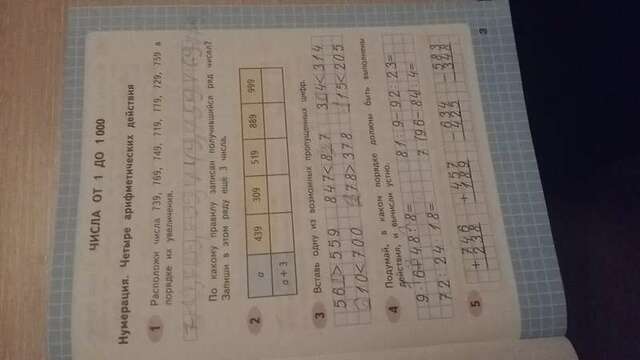 ЧИСЛА ОТ 1 ДО 1 000
Нумерация. Четыре арифметических действия
1 Расположи числа 739, 769, 749, 719, 779, 729, 759 в
порядке их увеличения.
По какому правилу записан получившийся ряд чисел?
Запиши в этом ряду ещё 3 числа.
2 a 439 309 519 889 999
a + 3
3 Вставь одну из возможных пропущенных цифр.
56 >559 847<8 7 3 4<314
10<700 78>378 15<205
4 Подумай, в каком порядке должны быть выполнены
действия, и вычисли устно.
9·6+48:8= 81:9-92:23=
72:24·18= 7·(96-84):4=
5 +746 +457 -634 -583
238 189 425 348
3